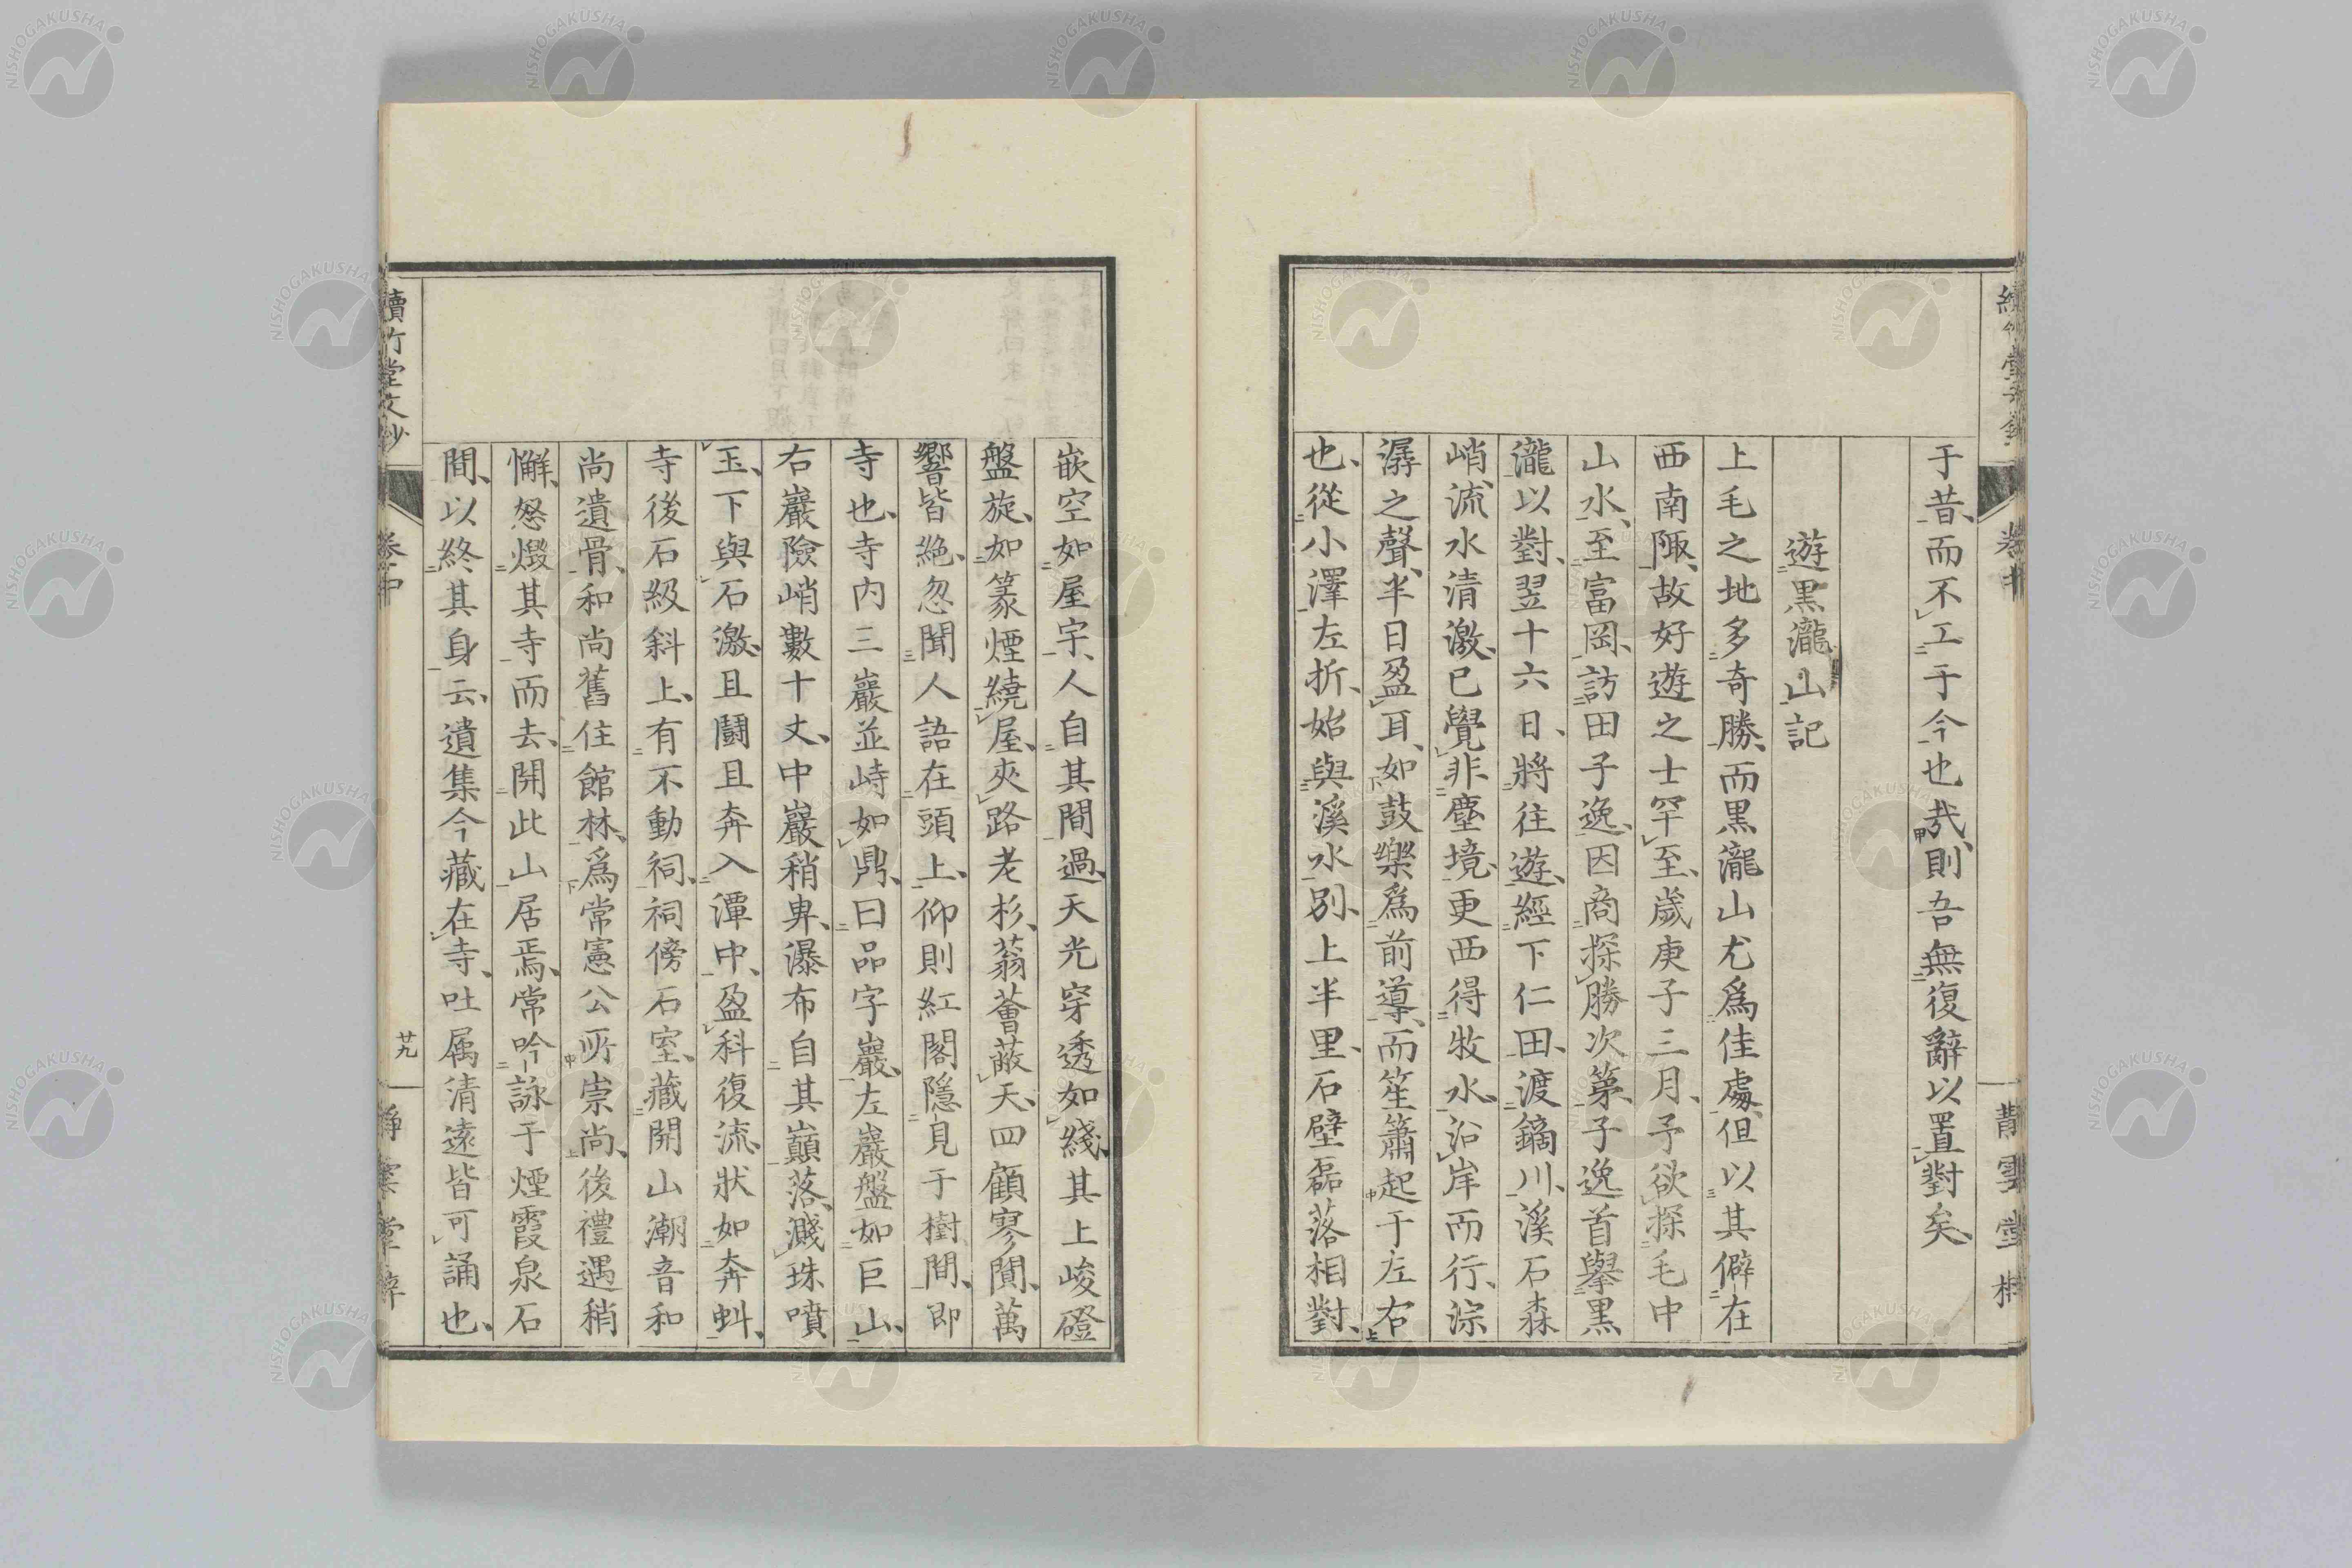 于昔、而不工于今也哉、則吾無復辭以置對矣、
遊黒瀧山記
上毛之地多奇勝、而黒瀧山尤爲佳處、但以其僻在
西南陬、故好遊之士罕至、歲庚子三月、予欲探毛中
山水、至富岡、訪田子逸、因商探勝次第、子逸首擧黒
瀧以對、翌十六日、將往遊、經下仁田、渡鏑川、溪石森
峭、流水清激、已覺非塵境、更西得牧水、沿岸而行、淙
潺之聲、半日盈耳、如鼓樂爲前導、而笙簫起于左右
也、從小澤左折、始與溪水別、上半里、石壁磊落相對、
嵌空如屋宇、人自其間過、天光穿透如綫、其上峻磴
盤旋、如篆煙繞屋、夾路老杉、蓊薈蔽天、四顧寥闃、萬
響皆絶、忽聞人語在頭上、仰則紅閣隱見于樹間、即
寺也、寺内三巖並峙如鼎、曰品字巖、左巖盤如巨山、
右巖險峭數十丈、中巖稍卑、瀑布自其巓落、濺珠噴
玉、下與石激、且鬪且奔入潭中、盈科復流、狀如奔虯、
寺後石級斜上、有不動祠、祠傍石室、藏開山潮音和
尚遺骨、和尚舊住館林、爲常憲公所崇尚、後禮遇稍
懈、怒燬其寺而去、開此山居焉、常吟詠于煙霞泉石
間、以終其身云、遺集今藏在寺、吐属清遠皆可誦也、
續竹堂文鈔
卷中
廿九